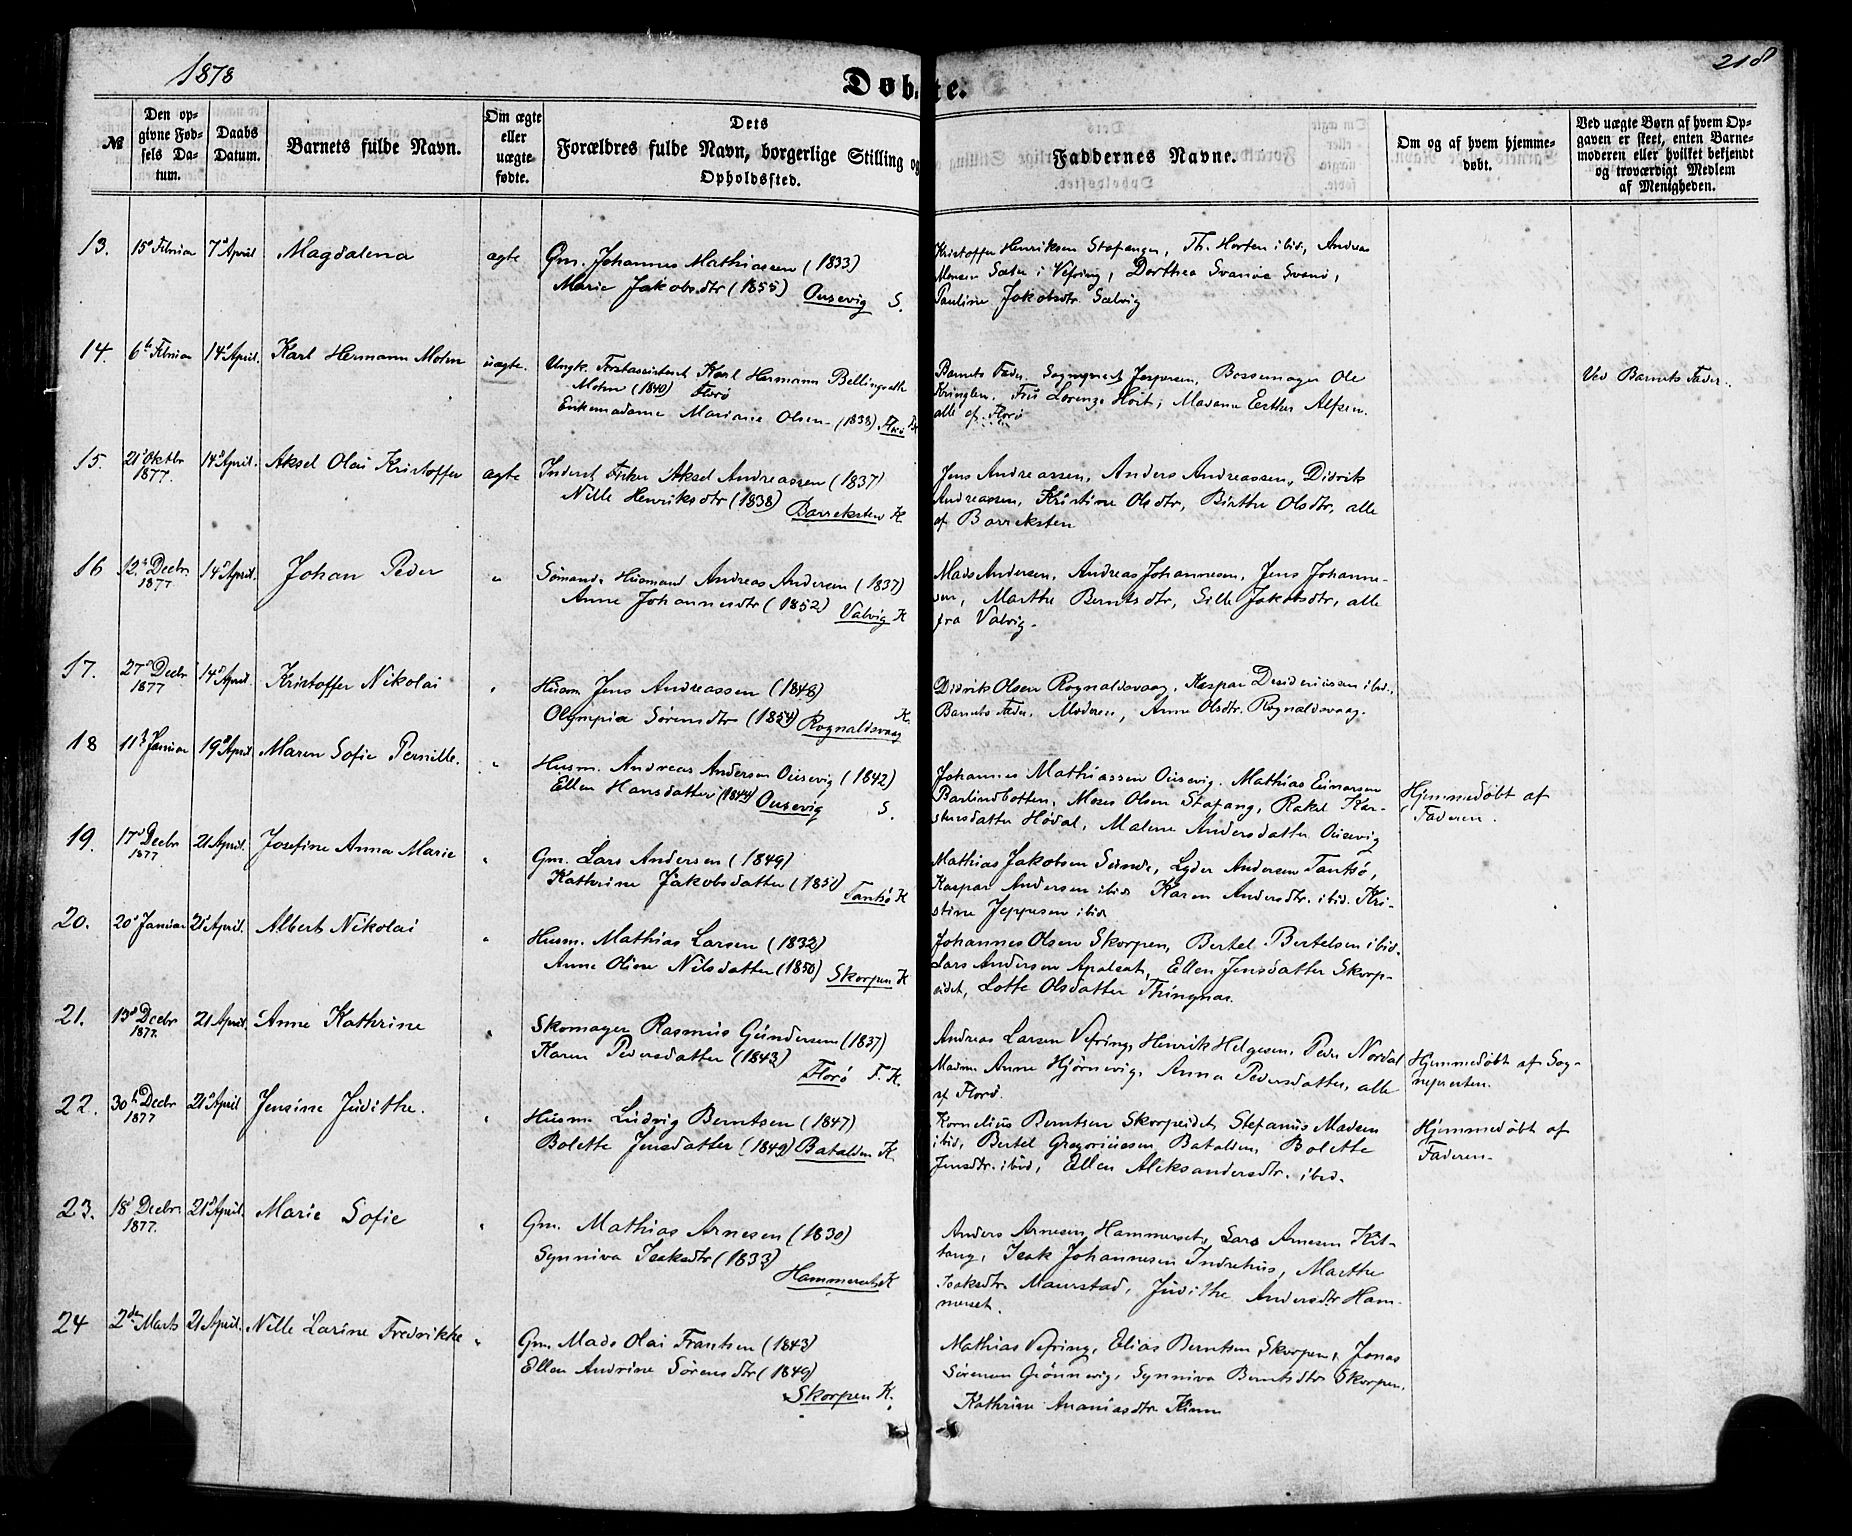 1878
Døbte.
218
№
Den op-
givne Fød-
sels Da-
tum.
Daabs
Datum.
Barnets fulde Navn.
Om ægte
eller
uægte
fødte.
Dets
Forældres fulde Navn, borgerlige Stilling og
Opholdssted.
Faddernes Navne.
Om og af hvem hjemme-
døbt.
Ved uægte Børn af hvem Op-
gaven er skeet, enten Barne-
moderen eller hvilket bekjendt
og troværdigt Medlem
af Menigheden.
13. 15 Februar 7 April Magdalena ægte Gm. Johannes Mathiassen (1833)
Marie Jakobsdtr (1855) Ousevig S.
Kristoffer Henriksen Stafangen, Th. Horten ibid, Andreas
Monsen Sæter i Vefring, Dorthea Svanøe Svanø,
Pauline Jakobsdtr Sælvig
14. 6te Februar 14 April. Karl Hermann Mohn uægte. Ungk. Forstassistent Karl Hermann Bellingvath
Mohn (1840) Florø
Enkemadame Mariane Olsen (1838) Florø
Barnets Fader, Sogneprest Jespersen, Bøssemager Ole
Kringlen, Frø Lorenze Høit, Madame Esther Alfsen.
alle af Florø
Ved Barnets Fader.
15. 21 Oktbr 14 April. Aksel Olai Kristoffer ægte Inderst Fisker Aksel Andreassen (1837)
1877.
Nille Henriksdtr (1838) Barreksten K
Jens Andreassen, Anders Andreassen, Didrik
Andreassen, Kristine Olsdtr, Birthe Olsdtr, alle
af Barreksten
16 12 Decbr. 14 April. Johan Peder " Sømand Husmand Andreas Andersen (1837)
1877
Anne Johannesdtr (1852) Valvig K
Mads Andersen, Andreas Johannesen, Jens Johanne-
sen, Marthe Berntsdtr, Sille Jakobsdtr, alle
fra Valvig.
17. 27 Decbr 14 April Kristoffer Nikolai " Husm Jens Andreassen (1848)
1877
Olympia Sørensdtr (1854) Rognaldsvaag K.
Didrik Olsen Rognaldsvaag, Kaspar Desideriussen ibid.,
Barnets Fader, Moderen, Anne Olsdtr. Rognaldsvaag.
18 11 Januar 19 April Maren Sofie Pernille. " Husm. Andreas Andersen Ousevig (1842)
Ellen Hansdatter (1844) Ousevig S.
Johannes Mathiassen Ousevig. Mathias Einarsen
Barlindbotten, Moses Olsen Stafang, Rakel Kar-
stensdatter Hødal, Malene Andersdatter Ousevig
Hjemmedøbt af
Faderen.
19. 17 Decbr 21 April. Josefine Anna Marie " Gm. Lars Andersen (1849)
1877
Kathrine Jakobsdatter (1851) Tansø K
Mathias Jakobsen Sunde, Lyder Andersen Tansø,
Kaspar Andersen ibid Karen Andersdtr. ibid. Kri-
stine Jeppesen ibid
20. 20 Januar 21 April. Albert Nikolai " Husm. Mathias Larsen (1832)
Anne Oliene Nilsdatter (1850) Skorpen K
Johannes Olsen Skorpen, Bertel Bertelsen ibid.
Lars Andersen Apalsæt, Ellen Jensdatter Skorp-
eidet, Lotte Olsdatter Thingnæs.
21. 13 Decbr 21 April. Anne Kathrine " Skomager Rasmus Gundersen (1837)
1877.
Karen Pedersdatter (1843)
Florø F. K.
Andreas Larsen Vefring, Henrik Helgesen, Peder Nordal
Madme Anne Hjørnevig, Anna Pedersdatter, alle
af Florø.
Hjemmedøbt af Sog-
nepresten.
22. 30 Decbr 21 April Jensine Judithe. " Husm. Ludvig Berntsen (1847)
1877
Bolette Jensdatter (1849) Batalden K.
Kornelius Berntsen Skorpeidet Stefanus Madsen
ibid, Bertel Gregoriussen Batalden, Bolette
Jensdtr. ibid, Ellen Aleksandersdtr. ibid.
Hjemmedøbt af
Faderen.
23. 18 Decbr 21 April. Marie Sofie " Gm. Mathias Arnesen (1830)
1877.
Synniva Isaksdtr (1833)
Hammerset K
Anders Arnesen Hammerset, Lars Arnesen Kit-
tang, Isak Johannesen Indrehus, Marthe
Isaksdtr Maurstad, Judithe Andersdtr Ham-
merset.
24 2den Marts 21 April. Nille Larine Fredrikke " Gm. Mads Olai Frantsen (1843)
Ellen Andrine Sørensdtr (1849)
Skorpen K.
Mathias Vefring, Elias Berntsen Skorpen, Jonas
Sørensen Grønnevig, Synniva Berntsdtr Skorpen,
Kathrine Ananiasdtr Kinn